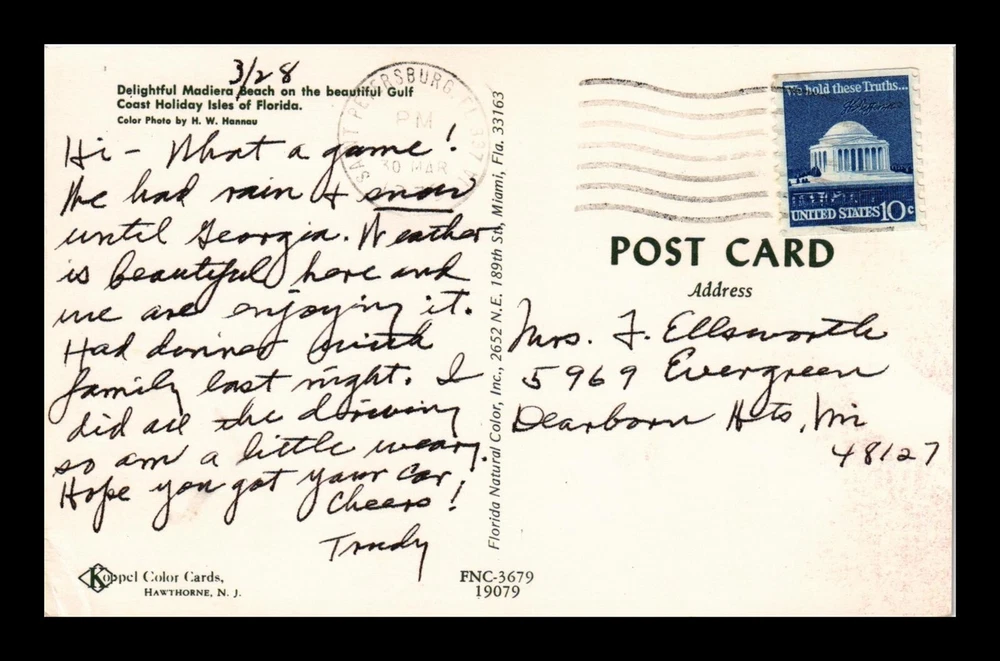 3/28
Delightful Madiera Beach on the beautiful Gulf
Coast Holiday Isles of Florida.
Color Photo by H. W. Hannau
Hi - What a game!
We had rain & snow
until Georgia. Weather
is beautiful here and
we are enjoying it.
Had dinner with
family last night. I
did all the driving
so am a little weary.
Hope you got your car!
Cheers!
Trudy
Koppel Color Cards,
HAWTHORNE, N. J.
SAINT PETERSBURG, FL 337
PM
30 MAR
Florida Natural Color, Inc., 2652 N.E. 189th St., Miami, Fla. 33163
FNC-3679
19079
We hold these Truths...
UNITED STATES 10c
POST CARD
Address
Mrs. F. Ellsworth
5969 Evergreen
Dearborn Hts, Mi
48127